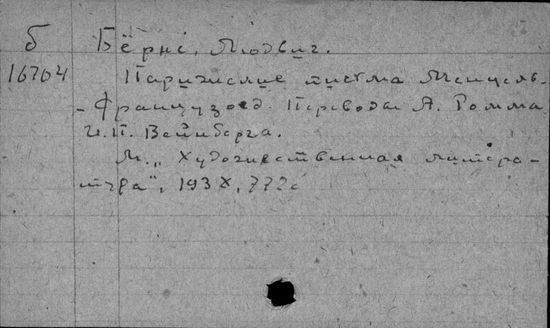 б Бёрне, Людвиг.
16704 Парижские письма Менцель-
-Французоед. Переводы А. Ромма
и П. Вейнберга.
М., "Художественная литера-
тура", 193X, 772с